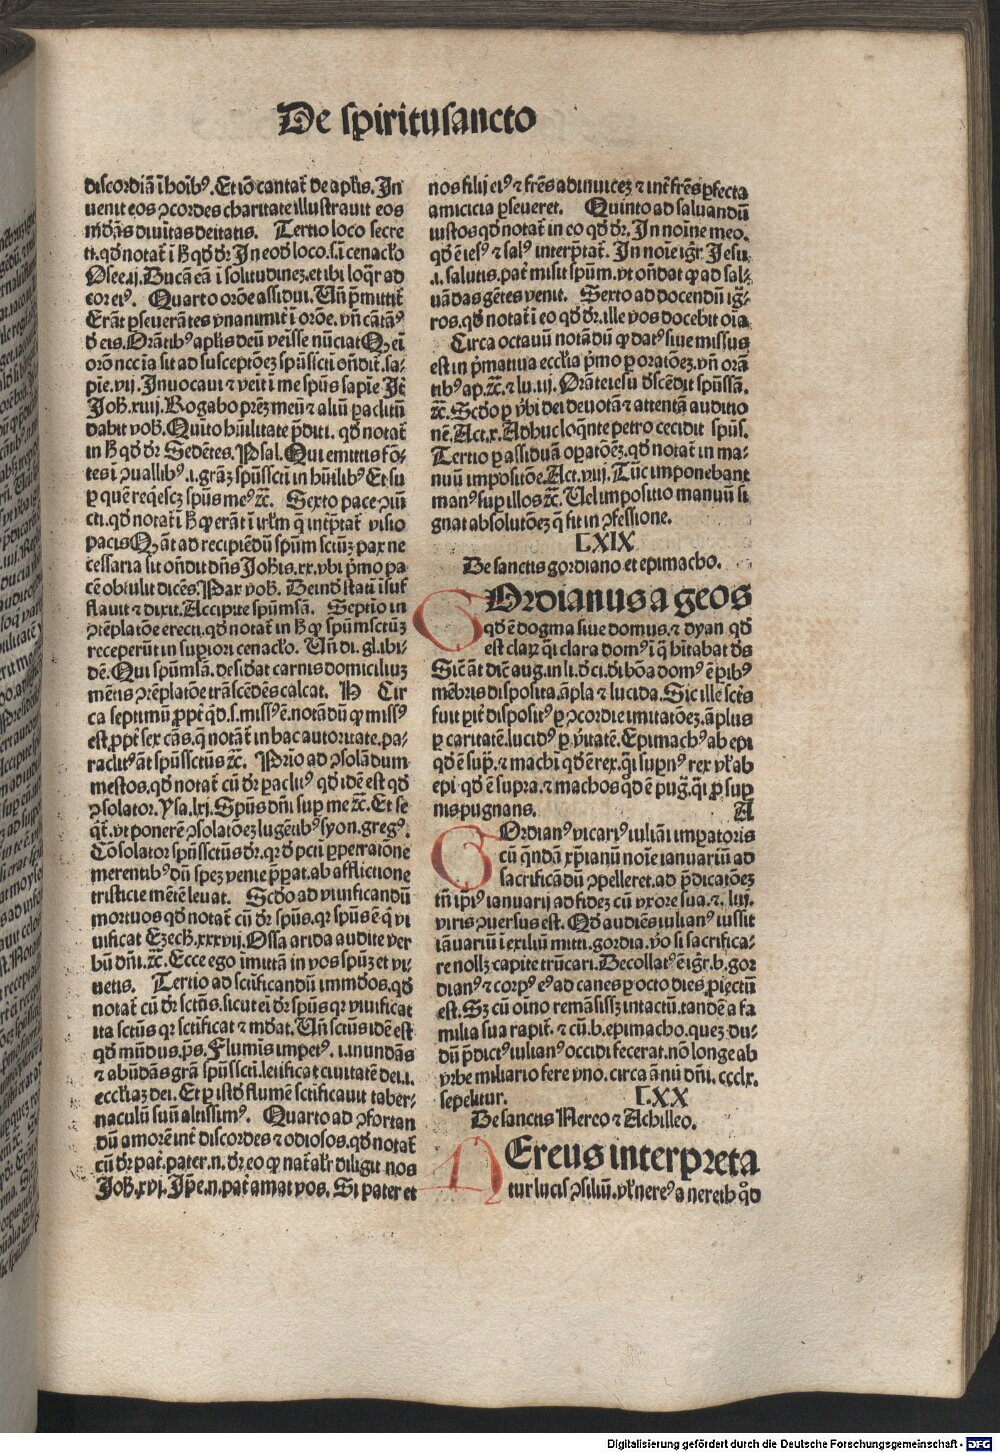 De spiritusancto
discordiā ī hoībꝰ. Et iō cantat̄ de apl̄is. In
uenit eos ꝯcordes charitate illustrauit eos
īhabitās diuītas deitatis. Tertio loco secre
ti. qd̄ notat̄ ī hͦ qd̄ dr̄ In eod̄ loco .s. ī cenacl̄o
Osee .ij. Ducā eā ī solitudinez. et ibi loq̄r ad
cor eiꝰ. Quarto orōe assidui. Vn̄ p̄mittit̄
Erāt ꝑseuerātes vnanimit̄ ī orōe. vn̄ cātāꝰ
Orātibꝰ aplīs deū venisse nūciat Q, ei
orō nccīa sit ad susceptōez spūs scti on̄dit̄ .sa-
pīe .vij. Inuocaui ⁊ venit ī me spūs sapīe It̄
Joh̄. xiiij. Rogabo prēz meū ⁊ aliū paclitū
dabit vob̄. Quīto hūilitate p̄diti. qd̄ notat̄
in hͦ qd̄ dr̄ Sedētes. Psal. Qui emittis fō-
tes ī ꝯuallibꝰ .i. grāz spūs scti in hūilibꝰ Et su
ꝑ quē reqͥescz spūs meꝰ ⁊c̄. Sexto pace ꝯiū
cti. qd̄ notat̄ ī hͦ ꝙ erāt ī irl̄m q̄ int̄ptat̄ visio
pacis Q, āt ad recipiēdū spūm sc̄tūz pax ne
cessaria sit on̄dit dn̄s Joh̄is. xx. vbi pͥmo pa
cē obtulit dicēs. Pax vob̄. Deīnd̄ statī īsuf
flauit ⁊ dixit. Accipite spūmsā. Septīo in
ꝯtēplatōe erecti. qd̄ notat̄ in hͦ ꝙ spūm sctūz
receperūt in suꝑiori cenacl̄o. Vn̄ di. gl. ibi-
dē. Qui spūmsā. desiderat carnis domiciliuz
mētis ꝯtēplatōe trāscēdēs calcat. H Cir
ca septimū ꝓpt̄ qd̄ .s. missꝰ ē. notādū ꝙ missꝰ
est. ꝓpt̄ sex cās. q̄ notāt̄ in hac autoritate. pa-
raclitꝰ āt spūs sctūs ⁊c̄. Prīo ad ꝯsolādum
mestos. qd̄ notat̄ cū dr̄ paclitꝰ qd̄ idē est qd̄
ꝯsolator. Ysa. lxi. Spūs dn̄i suꝑ me ⁊c̄. Et se
qͥt̄. vt ponerē ꝯsolatōez lugētibꝰ syon. gregꝰ.
Cōsolator spūs sctūs dr̄. qr d̄ pcti ꝑpetratione
merentibꝰ dū spez venie p̄parat. ab afflictione
tristicie mētē leuat. Scd̄o ad viuificandū
mortuos qd̄ notat̄ cū dr̄ spūs. qr spūs ē q̄ vi
uificat Ezech̄. xxxvij. Ossa arida audite ver
bū dn̄i. ⁊c̄. Ecce ego īmittā in vos spūz et vi-
uetis. Tertio ad sctīficandū immd̄os. qd̄
notat̄ cū dr̄ sctūs. sicut ei dr̄ spūs qr viuificat
ita sctūs qr sctīficat ⁊ mūdat. Vn̄ sctūs idē est
qd̄ mūdus. ps̄. Flumīs impetꝰ .i. inundās
⁊ abūdās grā spūs scti. letificat ciuitatē dei .i.
eccl̄iaz dei. Et ꝑ istd̄ flumē sctīficauit taber-
naculū suū altissimꝰ. Quarto ad ꝯfortan
dū amorē int̄ discordes ⁊ odiosos. qd̄ notat̄
cū dr̄ pat̄. pater .n. dr̄ eo ꝙ nat̄alr̄ diligit nos
Joh̄. xvj. Ip̄e .n. pat̄ amat vos. Si pater et
nos filij eiꝰ ⁊ fr̄es adinuicez ⁊ int̄ fr̄es ꝑfecta
amicicia ꝑseueret. Quinto ad saluandū
iustos qd̄ notat̄ in eo qd̄ dr̄. In noīne meo.
qd̄ ē iesꝰ ⁊ salꝰ interp̄tat̄. In noīe igr̄ Jesu
.i. salutis. pat̄ misit spūm. vt on̄dat ꝙ ad sal-
uādas gētes venit. Sexto ad docendū ig-
ros. qd̄ notat̄ ī eo qd̄ dr̄. ille vos docebit oīa
Circa octauū notādū ꝙ datꝰ siue missus
est in pͥmatiua eccl̄ia pͥmo ꝑ oratōez. vn̄ orā
tibꝰ ap. ⁊c̄. ⁊ lu. iij. Orāte iesu d̄scēdit spūssā.
⁊c̄. Scd̄o ꝑ v̄bi dei deuotā ⁊ attentā auditio
nē. Act. x. Adhuc loq̄nte petro cecidit spūs.
Tertio ꝑ assiduā oꝑatōez. qd̄ notat̄ in ma-
nuū impositōe. Act. viij. Tūc imponebant
manꝰ suꝑ illos ⁊c̄. Vel impositio manuū si
gnat absolutōez q̄ fit in ꝯfessione.
LXIX
De sanctis gordiano et epimacho.
GOrdianus a geos
qd̄ ē dogma siue domus. ⁊ dyan qd̄
est clarꝰ qͥ clara domꝰ ī q̄ hītabat dꝰs
Sic̄ āt dic̄ aug. in li. d̄ ci. di. bōa domꝰ ē ꝑtibꝰ
mēbris disposita. āpla ⁊ lucida. Sic ille scēs
fuit pit̄ dispositꝰ ꝑ ꝯcordie imitatōez. āplus
ꝑ caritatē. lucidꝰ ꝑ v̄itatē. Epimachꝰ ab epi
qd̄ ē supra. ⁊ machi qd̄ ē rex. qͥ suꝑnꝰ rex vl̄ ab
epi qd̄ ē supra. ⁊ machos qd̄ ē pugna. qͥ ꝓ suꝑ
nis pugnans. A
GOrdianꝰ vicariꝰ iuliāi impatoris
cū q̄ndā xp̄ianū noīe ianuariū ad
sacrificādū ꝯpelleret. ad p̄dicatōez
tn̄ ip̄iꝰ ianuarij ad fidez cū vxore sua. ⁊ .liij.
viris ꝯuersus est. Qd̄ audiēs iulianꝰ iussit
iānuariū ī exiliū mitti. gordia. v̄o si sacrifica-
re nollz capite trūcari. Decollatꝰ ē igr̄ .b. gor
dianꝰ ⁊ corpꝰ eꝰ ad canes ꝑ octo dies ꝓiectū
est. Sz cū oīno remāsissz intactū. tandē a fa
milia sua rapit̄. ⁊ cū .b. epimacho. quez du-
dū p̄dictꝰ iulianꝰ occidi fecerat. nō longe ab
vrbe miliario fere vno. circa ānū dn̄i. ccclx.
sepelitur. LXX
De sanctis Nereo ⁊ Achilleo.
NEreus interpreta
tur lucis ꝯsiliū. vl̄ nereꝰ a nereth qd̄